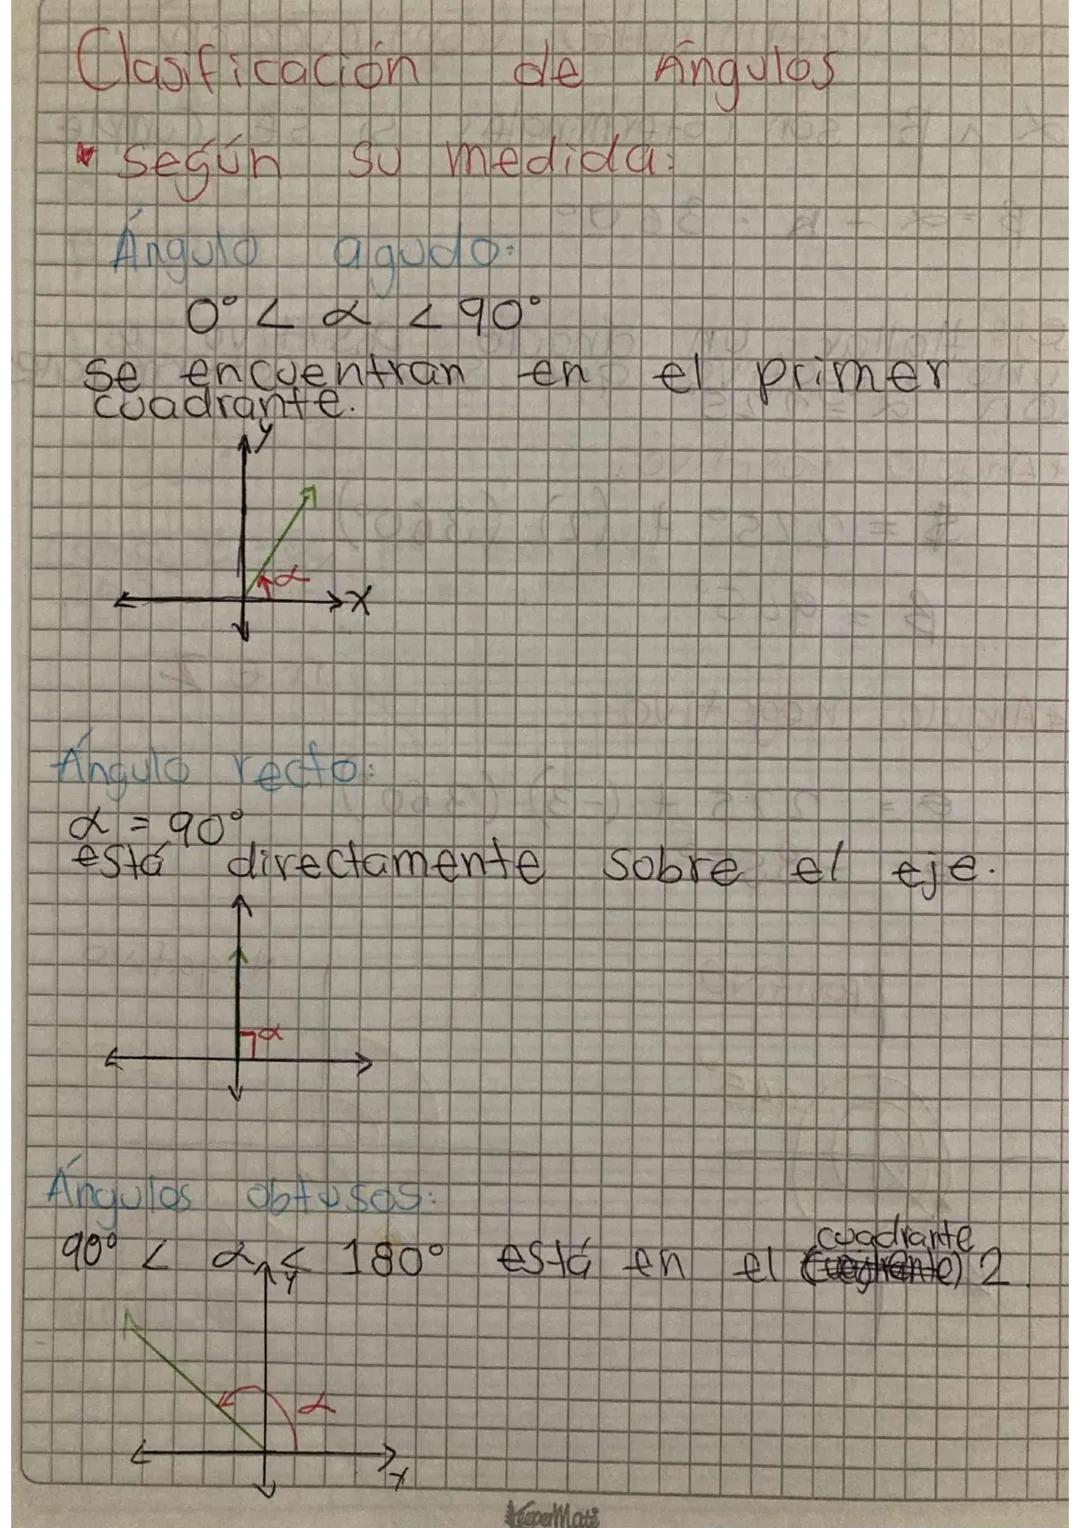 Clasificación de Ángulos
• según su medida:
Ángulo agudo:
0° < α < 90°
se encuentran en el primer
cuadrante.
y
α
x
Ángulo recto:
α = 90°
está directamente sobre el eje.
α
Ángulos obtusos:
cuadrante
90° < α < 180° está en el 2.
y
α
x
KeeperMate